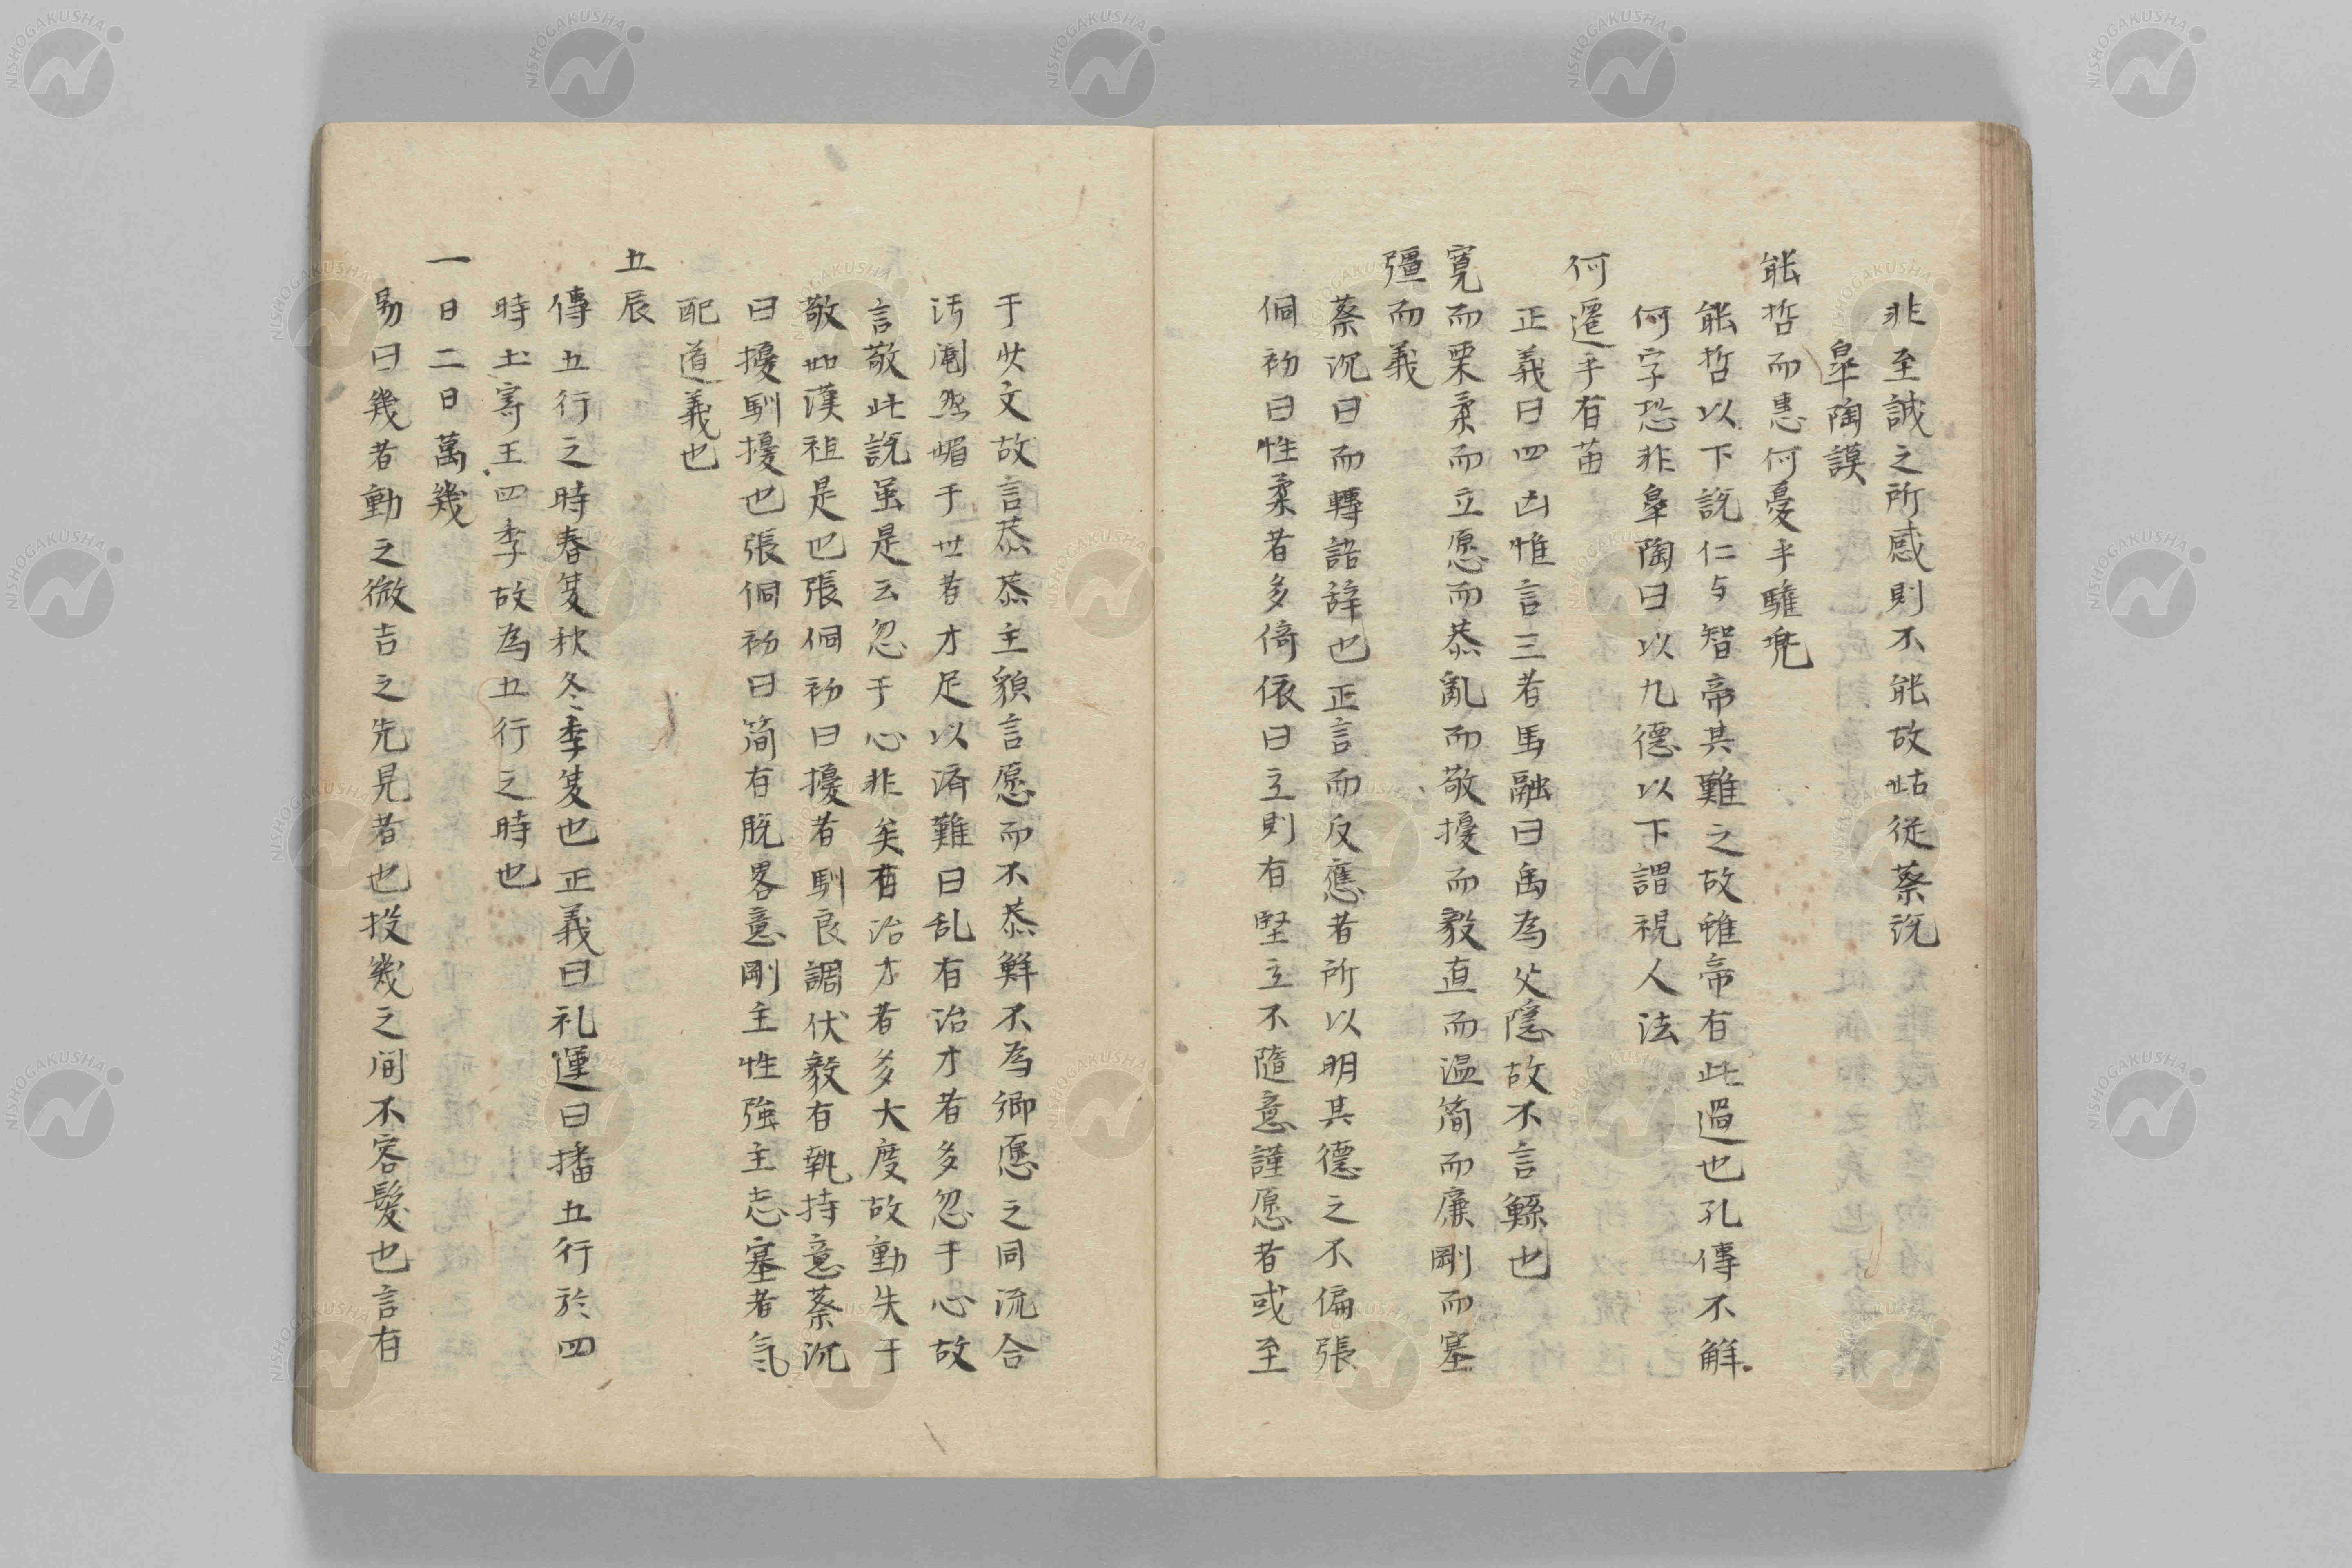 非至誠之所感則不能故姑従蔡説
皐陶謨
能哲而恵何憂乎驩兜
能哲以下説仁与智帝其難之故雖帝有此過也孔傳不解
何字恐非皐陶曰以九德以下謂視人法
何遷乎有苗
正義曰四凶惟言三者馬融曰禹為父隱故不言鯀也
寛而栗柔而立愿而恭亂而敬擾而毅直而温简而廉剛而塞
彊而義
蔡沉曰而轉語辞也正言而反應者所以明其德之不偏張
侗初曰性柔者多倚依曰立則有堅立不隨意謹愿者或至
于少文故言恭恭主貌言愿而不恭鮮不為鄉愿之同流合
汚閹然媚于世者才足以済難曰乱有治才者多忽于心故
言敬此説虽是云忽于心非矣有治才者多大度故動失于
敬如漢祖是也張侗初曰擾者馴良調伏毅有執持意蔡沉
曰擾馴擾也張侗初曰简有脱畧意剛主性強主志塞者氣
配道義也
五辰
傳五行之時春夏秋冬季夏也正義曰礼運曰播五行於四
時土寄王四季故為五行之時也
一日二日萬幾
易曰幾者動之微吉之先見者也投幾之间不容髮也言有
NISHOGAKUSHA